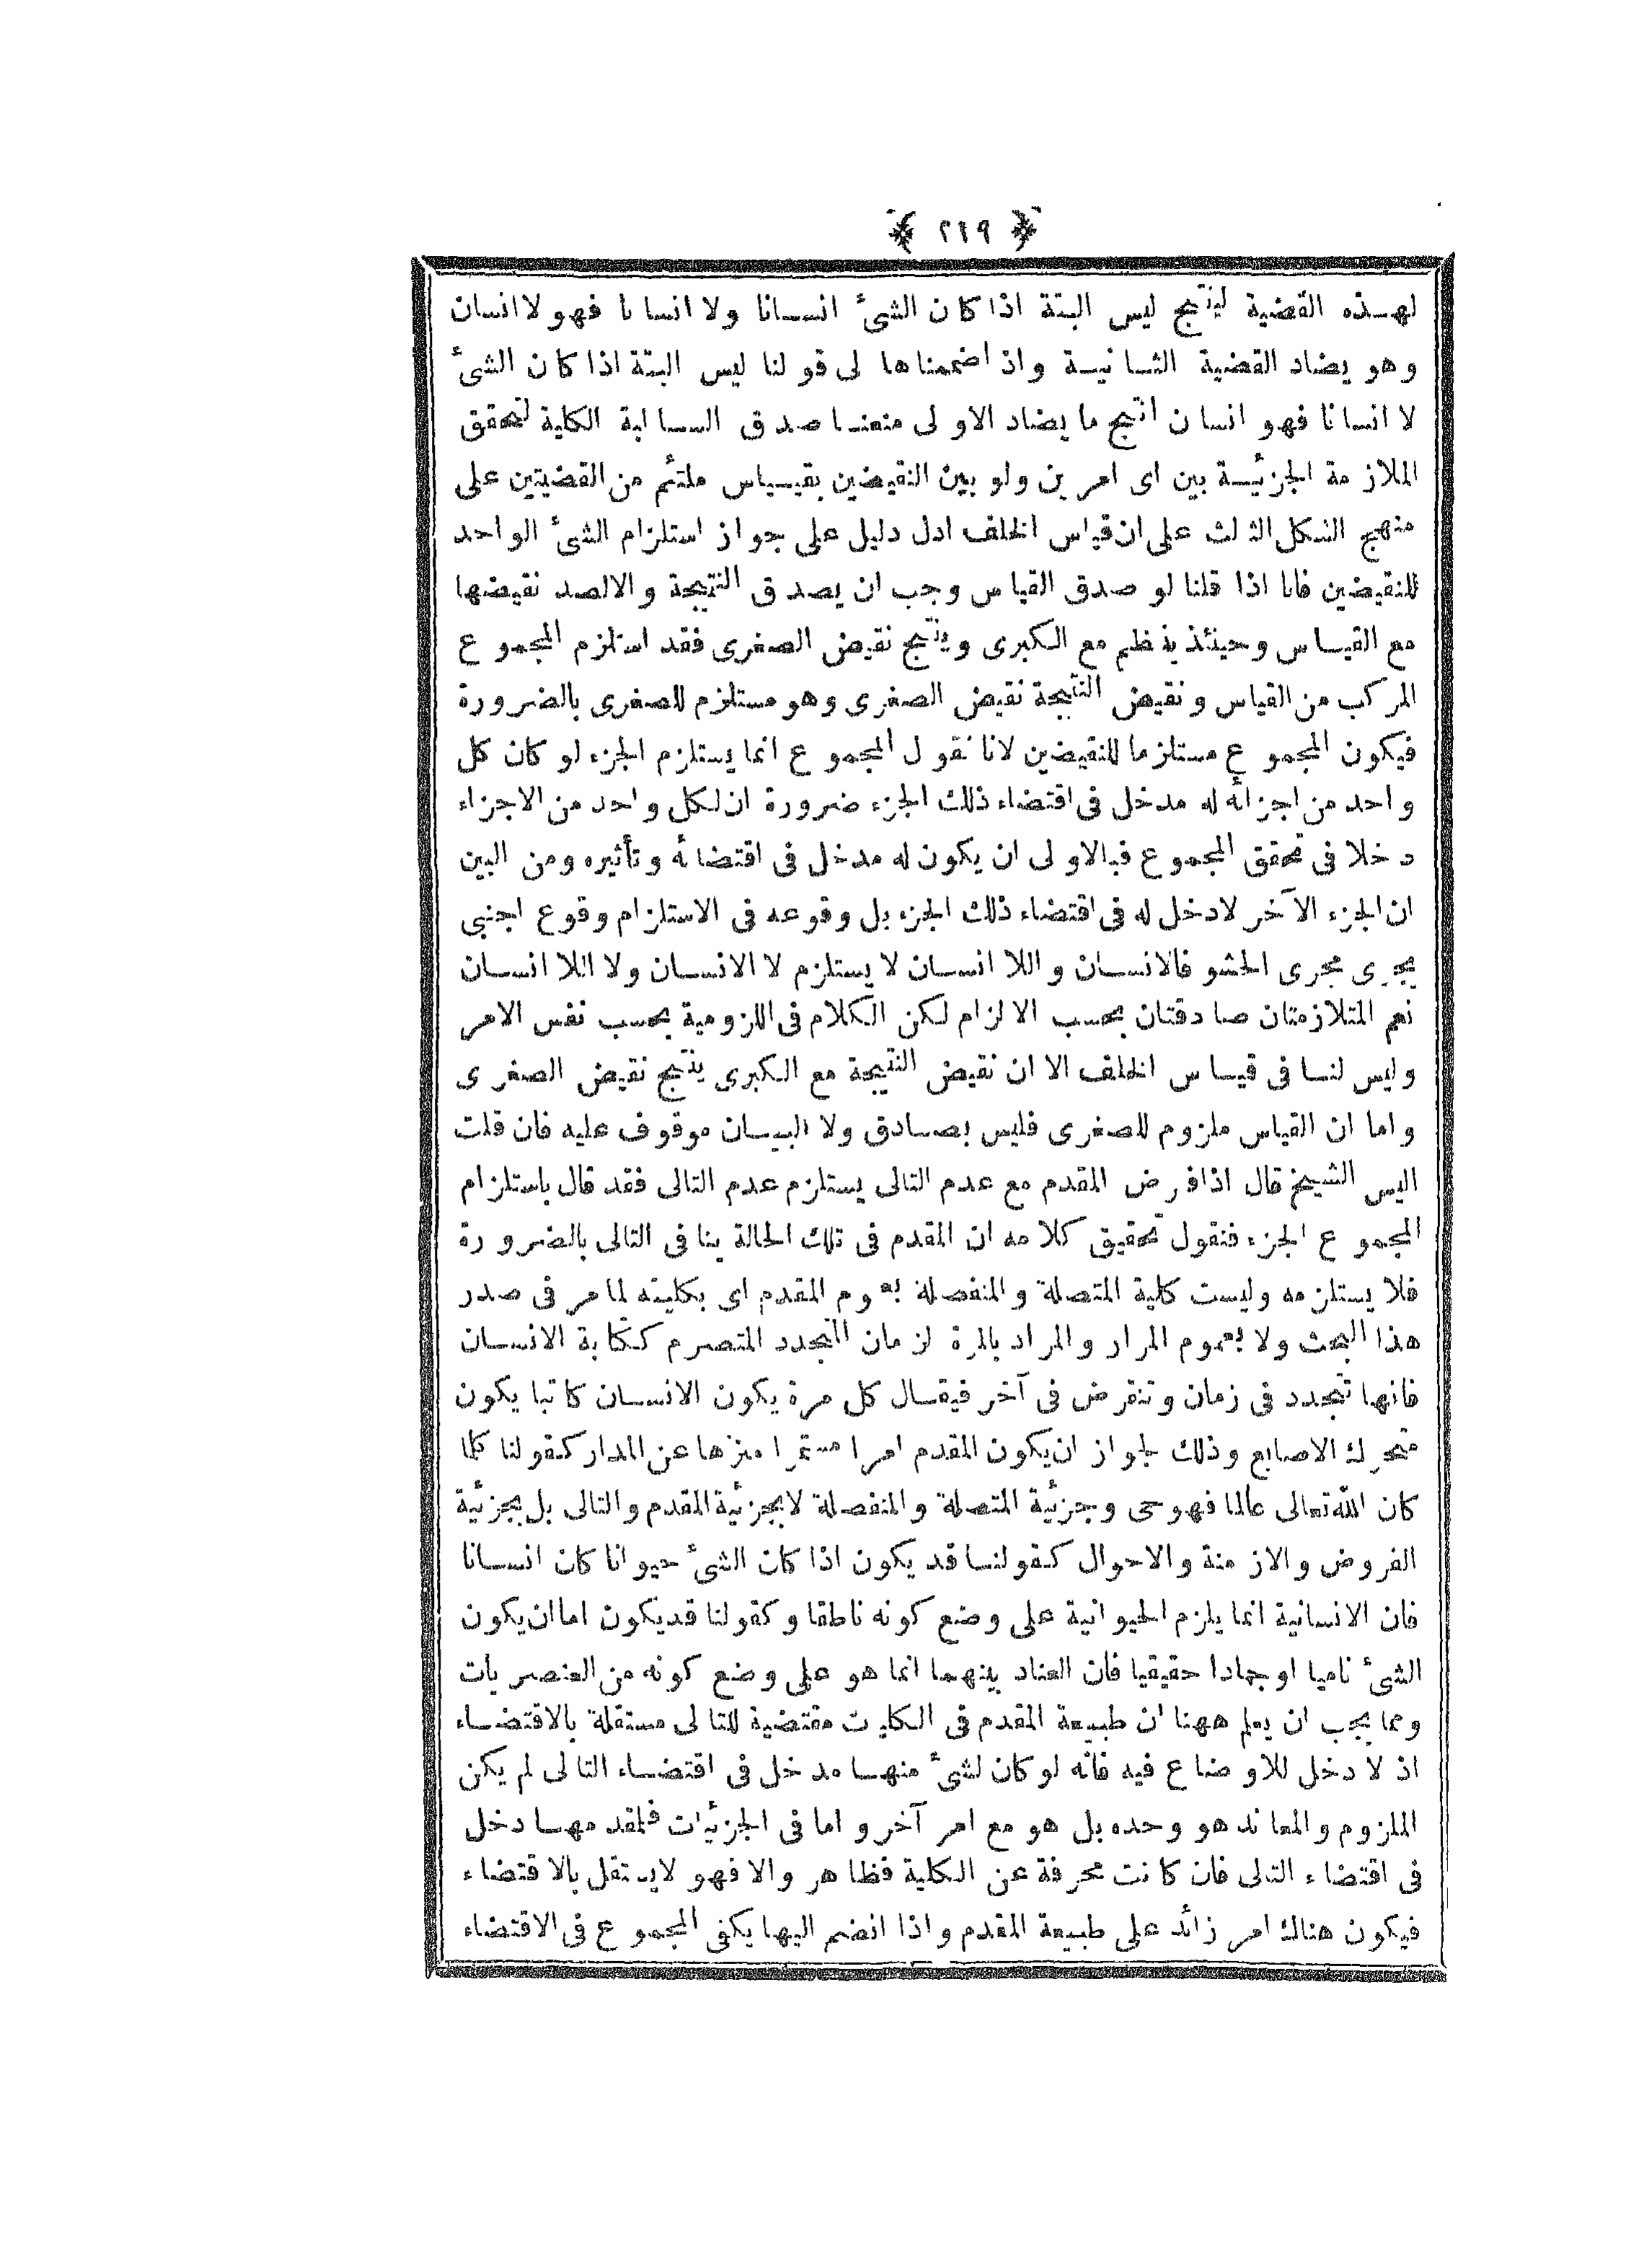 ﴿ ٢١٩ ﴾
لهذه القضية لينتج ليس البتة اذا كان الشئ انسانا ولا انسانا فهو لا انسان
وهو يضاد القضية الثانية واذ اضممناها لى قولنا ليس البتة اذا كان الشئ
لا انسانا فهو انسان انتج ما يضاد الاولى منعنا صدق السالبة الكلية لتحقق
الملازمة الجزئية بين اى امرين ولو بين النقيضين بقياس ملتئم من القضيتين على
منهج الشكل الثالث على ان قياس الخلف ادل دليل على جواز استلزام الشئ الواحد
للنقيضين فانا اذا قلنا لو صدق القياس وجب ان يصدق النتيجة والا لصد نقيضها
مع القياس وحينئذ ينظم مع الكبرى وينتج نقيض الصغرى فقد استلزم المجموع
المركب من القياس ونقيض النتيجة نقيض الصغرى وهو مستلزم للصغرى بالضرورة
فيكون المجموع مستلزما للنقيضين لانا نقول المجموع انما يستلزم الجزء لو كان كل
واحد من اجزائه له مدخل فى اقتضاء ذلك الجزء ضرورة ان لكل واحد من الاجزاء
دخلا فى تحقق المجموع فبالاولى ان يكون له مدخل فى اقتضائه وتأثيره ومن البين
ان الجزء الآخر لا دخل له فى اقتضاء ذلك الجزء بل وقوعه فى الاستلزام وقوع اجنبى
يجرى مجرى الحشو فالانسان واللا انسان لا يستلزم لا الانسان ولا اللا انسان
نعم المتلازمتان صادقتان بحسب الالزام لكن الكلام فى اللزومية بحسب نفس الامر
وليس لنا فى قياس الخلف الا ان نقيض النتيجة مع الكبرى ينتج نقيض الصغرى
واما ان القياس ملزوم للصغرى فليس بصادق ولا البيان موقوف عليه فان قلت
اليس الشيخ قال اذا فرض المقدم مع عدم التالى يستلزم عدم التالى فقد قال باستلزام
المجموع الجزء فنقول تحقيق كلامه ان المقدم فى تلك الحالة ينافى التالى بالضرورة
فلا يستلزمه وليست كلية المتصلة والمنفصلة بعموم المقدم اى بكليته لما مر فى صدر
هذا البحث ولا بعموم المرار والمراد بالمرة لزمان المتجدد المتصرم ككتابة الانسان
فانها تتجدد فى زمان وتنقرض فى آخر فيقال كل مرة يكون الانسان كاتبا يكون
متحرك الاصابع وذلك لجواز ان يكون المقدم امرا مستمرا منزها عن المدار كقولنا كلما
كان الله تعالى عالما فهو حى وجزئية المتصلة والمنفصلة لا بجزئية المقدم والتالى بل بجزئية
الفروض والازمنة والاحوال كقولنا قد يكون اذا كان الشئ حيوانا كان انسانا
فان الانسانية انما يلزم الحيوانية على وضع كونه ناطقا وكقولنا قد يكون اما ان يكون
الشئ ناميا او جمادا حقيقيا فان العناد بينهما انما هو على وضع كونه من العنصريات
ومما يجب ان يعلم ههنا ان طبيعة المقدم فى الكليت مقتضية للتالى مستقلة بالاقتضاء
اذ لا دخل للاوضاع فيه فانه لو كان لشئ منها مدخل فى اقتضاء التالى لم يكن
الملزوم والمعاند هو وحده بل هو مع امر آخر واما فى الجزئيات فلمقدمها دخل
فى اقتضاء التالى فان كانت محرفة عن الكلية فظاهر والا فهو لا يستقل بالاقتضاء
فيكون هناك امر زائد على طبيعة المقدم واذا انضم اليها يكفى المجموع فى الاقتضاء